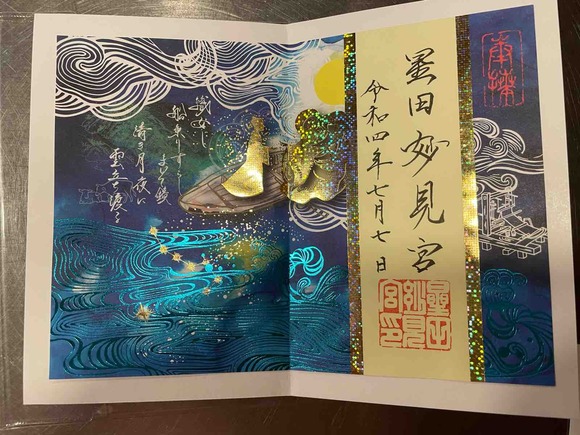 奉拝
星田妙見宮
令和四年七月七日
星田
妙見
宮印
織女し
船乗りすらし
まそ鏡
清き月夜に
雲立ち渡る